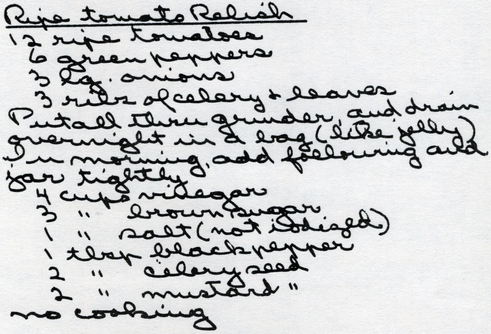 Ripe tomato Relish
12 ripe tomatoes
6 green peppers
3 lg. onions
3 ribs of celery & leaves
Put all thru grinder, and drain
overnight in a bag (like jelly)
In morning, add following and
jar tightly
4 cups vinegar
3 " brown sugar
1 " salt (not iodized)
1 tbsp black pepper
2 " celery seed
2 " mustard "
no cooking